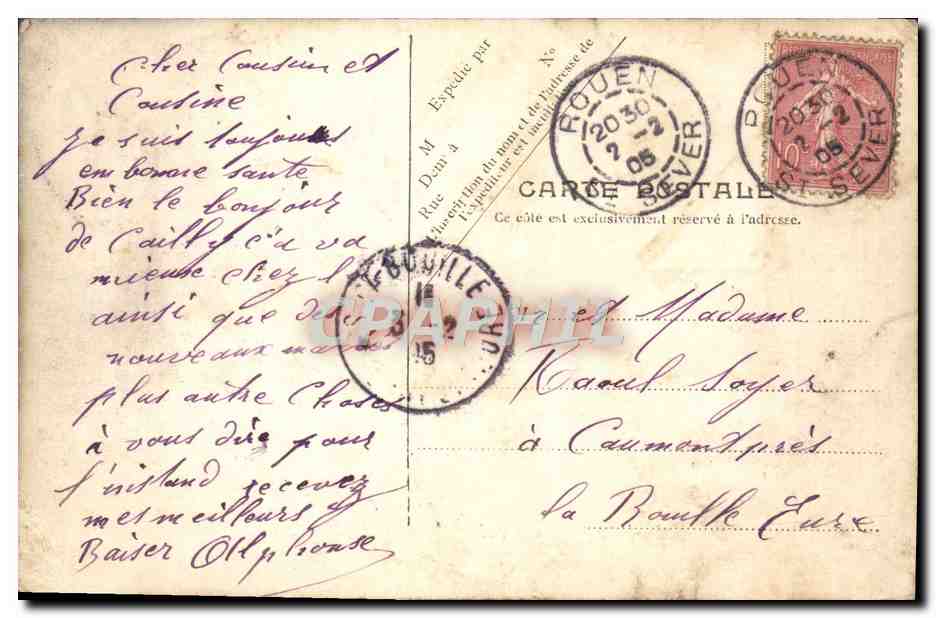 Cher Cousin et
Cousine
je suis toujours
en bonne santé
Bien le bonjour
de Cailly c'a va
mieuse chez
ainsi que des
nouveaux
plus autre choses
à vous dire pour
l'instand recevez
mes meilleurs
Baiser Allphonse
Expedié par
No
M
Dem^t à
Rue
l'inscription du nom et de l'adresse de
l'expéditeur est facult.
ROUEN
20 30
2 -2
05
ST SEVER
ROUEN
20 30
2 -2
05
ST SEVER
10
CARTE POSTALE
Ce côté est exclusivement réservé à l'adresse.
LA BOUILLE
3 2
05
CPAPHIL
et Madame
Raoul Soyer
à Caumont près
la Bouille Eure